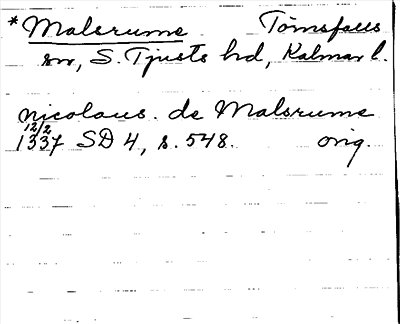 * Malsrums Törnsfalls
sn, S. Tjusts hd, Kalmar l.
nicolaus. de Malsrums
12/2
1337 SD 4, s. 548. orig.